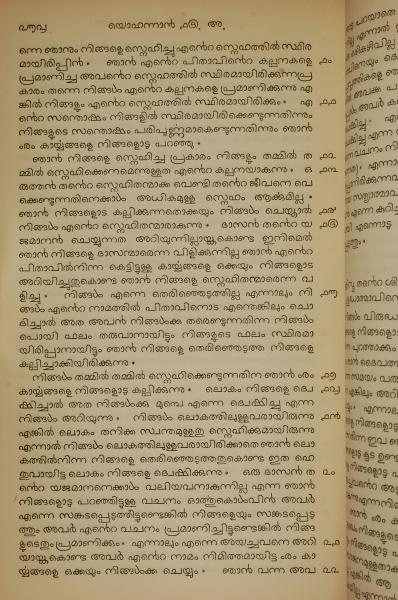 യൊഹന്നാൻ ൧൫. അ.
ന്നെ ഞാനും നിങ്ങളെ സ്നെഹിച്ചു എന്റെ സ്നെഹത്തിൽ സ്ഥിര
മായിരിപ്പിൻ • ഞാൻ എന്റെ പിതാവിന്റെ കല്പനകളെ ൧൦
പ്രമാണിച്ച അവന്റെ സ്നെഹത്തിൽ സ്ഥിരമായിരിക്കുന്നപ്ര
കാരം തന്നെ നിങ്ങൾ എന്റെ കല്പനകളെ പ്രമാണിക്കുന്നു എ
ങ്കിൽ നിങ്ങളും എന്റെ സ്നെഹത്തിൽ സ്ഥിരമായിരിക്കും • എ ൧൧
ന്റെ സന്തൊഷം നിങ്ങളിൽ സ്ഥിരമായിരിക്കെണ്ടുന്നതിന്നും
നിങ്ങളുടെ സന്തൊഷം പരിപൂൎണ്ണമാകെണ്ടുന്നതിന്നും ഞാൻ
ൟ കാൎയ്യങ്ങളെ നിങ്ങളൊടു പറഞ്ഞു •
ഞാൻ നിങ്ങളെ സ്നെഹിച്ച പ്രകാരം നിങ്ങളും തമ്മിൽ ത ൧൨
മ്മിൽ സ്നെഹിക്കെണമെന്നുള്ളത എന്റെ കല്പനയാകുന്നു • ഒ ൧൩
രുത്തൻ തന്റെ സ്നെഹിതന്മാൎക്കു വെണ്ടി തന്റെ ജീവനെ വെ
ക്കെണ്ടുന്നതിനെക്കാൾ അധികമുള്ള സ്നെഹം ആൎക്കുമില്ല •
ഞാൻ നിങ്ങളൊട കല്പിക്കുന്നതൊക്കയും നിങ്ങൾ ചെയ്താൽ ൧൪
നിങ്ങൾ എന്റെ സ്നെഹിതന്മാരാകുന്നു • ദാസൻ തന്റെ യ ൧൫
ജമാനൻ ചെയ്യുന്നത അറിയുന്നില്ലായ്കകൊണ്ട ഇനിമെൽ
ഞാൻ നിങ്ങളെ ദാസന്മാരെന്ന വിളിക്കുന്നില്ല ഞാൻ എന്റെ
പിതാവിൽനിന്ന കെട്ടിട്ടുള്ള കാൎയ്യങ്ങളെ ഒക്കയും നിങ്ങളൊട
അറിയിച്ചതുകൊണ്ട ഞാൻ നിങ്ങളെ സ്നെഹിതന്മാരെന്ന വ
ളിച്ചു • നിങ്ങൾ എന്നെ തെരിഞ്ഞെടുത്തില്ല എന്നാലും നി ൧൬
ങ്ങൾ എന്റെ നാമത്തിൽ പിതാവിനൊട എന്തെങ്കിലും ചൊ
ദിച്ചാൽ അത അവൻ നിങ്ങൾക്കു തരെണ്ടുന്നതിന്ന നിങ്ങൾ
പൊയി ഫലം തരുവാനായിട്ടും നിങ്ങളുടെ ഫലം സ്ഥിരമാ
യിരിപ്പാനായിട്ടും ഞാൻ നിങ്ങളെ തെരിഞ്ഞെടുത്ത നിങ്ങളെ
കല്പിച്ചാക്കിയിരിക്കുന്നു •
നിങ്ങൾ തമ്മിൽ തമ്മിൽ സ്നെഹിക്കുന്നതിന ഞാൻ ൟ ൧൭
കാൎയ്യങ്ങളെ നിങ്ങളൊടു കല്പിക്കുന്നു • ലൊകം നിങ്ങളെ ദ്വെ ൧൮
ഷിച്ചാൽ അത നിങ്ങൾക്കു മുമ്പെ എന്നെ ദ്വെഷിച്ചു എന്ന
നിങ്ങൾ അറിയുന്നു • നിങ്ങൾ ലൊകത്തിലുള്ളവരായിരുന്നു ൧൯
എങ്കിൽ ലൊകം തനിക്കു സ്വന്തമുള്ളതു സ്നെഹിക്കുമായിരുന്നു
എന്നാൽ നിങ്ങൾ ലൊകത്തിലുള്ളവരായിരിക്കാതെ ഞാൻ ലൊ
കത്തിൽനിന്ന നിങ്ങളെ തെരിഞ്ഞെടുത്തതുകൊണ്ട ഇത ഹെ
തുവായിട്ട ലൊകം നിങ്ങളെ ദ്വെഷിക്കുന്നു • ഒരു ദാസൻ ത ൨൦
ന്റെ യജമാനനെക്കാൾ വലിയവനാകുന്നില്ല എന്ന ഞാൻ
നിങ്ങളൊടു പറഞ്ഞിട്ടുള്ള വചനം ഓൎത്തുകൊൾവിൻ അവർ
എന്നെ സങ്കടപ്പെടുത്തീട്ടുണ്ടെങ്കിൽ നിങ്ങളെയും സങ്കടപ്പെടു
ത്തും അവർ എന്റെ വചനം പ്രമാണിച്ചിട്ടുണ്ടെങ്കിൽ നിങ്ങ
ളുടെതും പ്രമാണിക്കും • എന്നാലും എന്നെ അയച്ചവനെ അറി ൨൧
യായ്കകൊണ്ട അവർ എന്റെ നാമം നിമിത്തമായിട്ട ൟ കാ
ൎയ്യങ്ങളെ ഒക്കയും നിങ്ങൾക്കു ചെയ്യും • ഞാൻ വന്ന അവ ൨൨